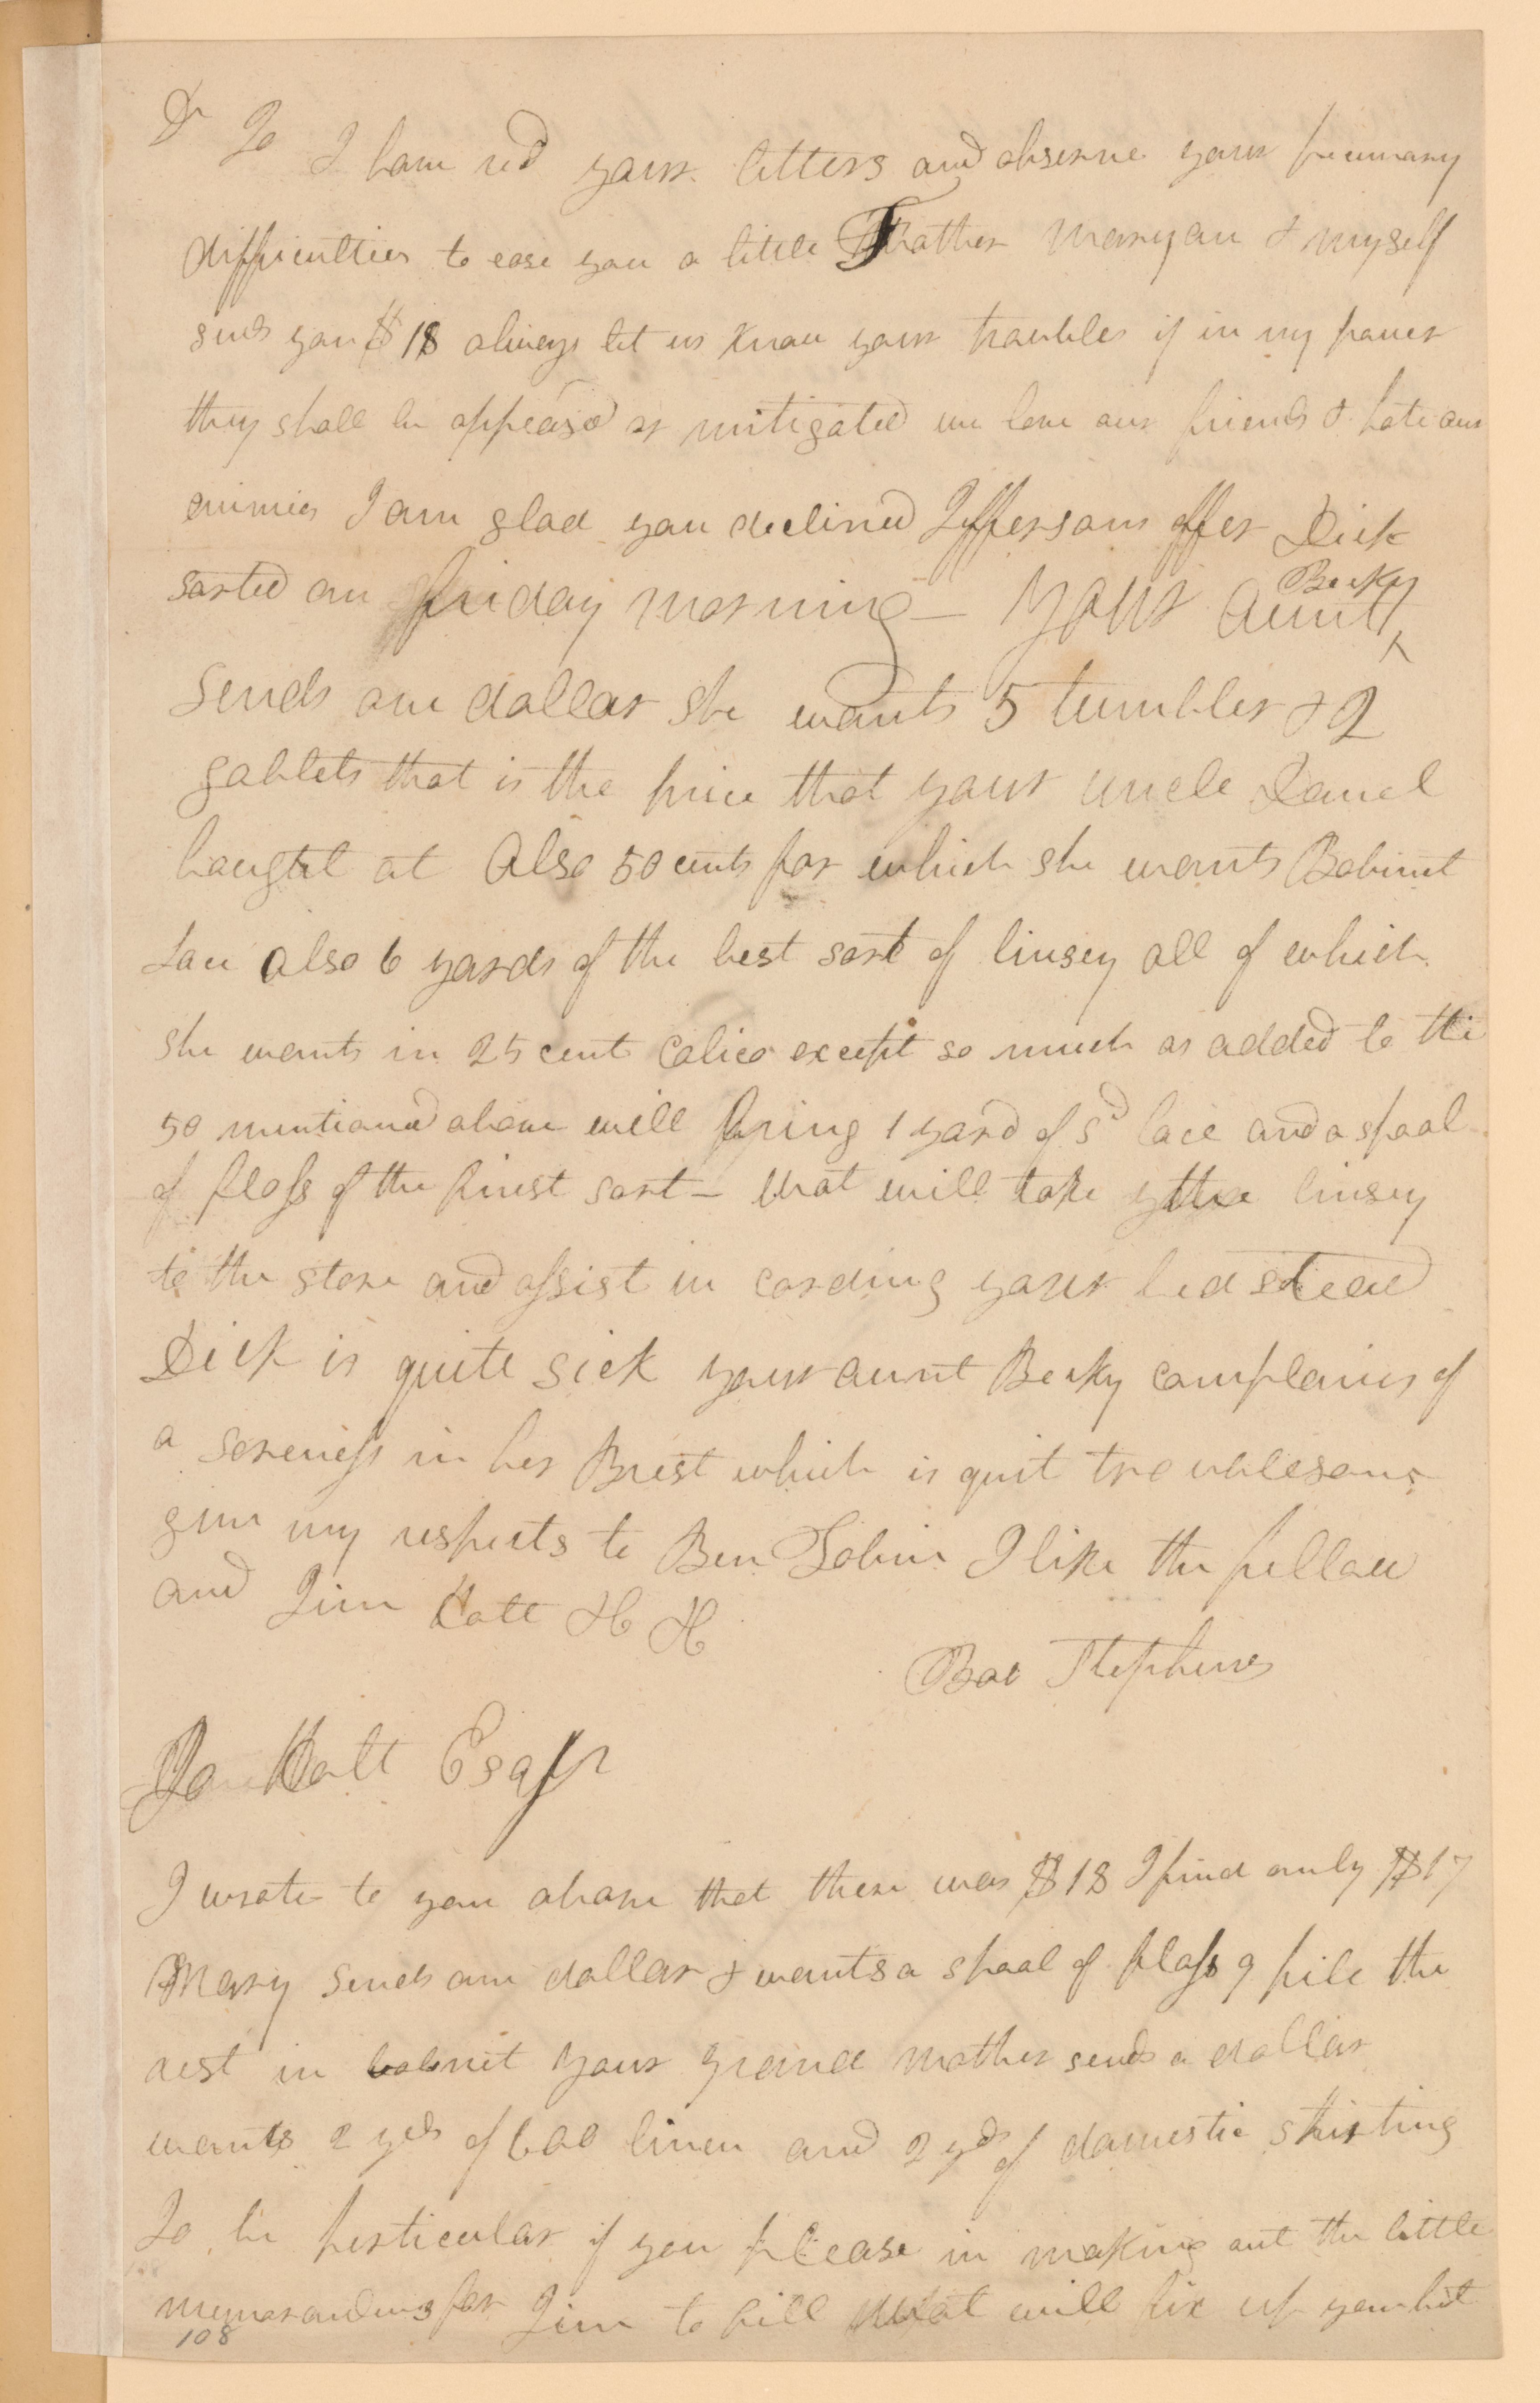 Dr Jo I have recd your letters and observe your pecuniary
difficulties to ease you a little Father Maryan & myself
send you $18 always let us know your troubles if in my power
they shall be appeased or mitigated we love our friends & hate our
enimies I am glad you declined Jeffersons offer Dick
sarted on friday morning — your aunt Becky
sends one dollar she wants 5 tumbler & 2
goblets that is the price that your uncle Daniel
bought at Also 50 cents for which she wants Bobinet
Lace also 6 yards of the best sort of linsey all of which
she wants in 25 cent Calico except so much as added to the
50 mentioned above will bring 1 yard of sd lace and a spool
of floss of the finest sort — Wat will take the linsey
to the store and assist in cording your bedstead
Dick is quite sick your aunt Becky complains of
a soreness in her Brest which is quit troublesome
give my respects to Ben Tobin I like the fellow
and Jim Holt H H
Bob Stephens
Jo Holt Esqr
I wrote to you above that there was $18 I find only $17
Mary sends one dollar & wants a spool of floss & pile the
rest in bobnit your grand mother sends a dollar
wants 2 yds of 600 linen and 2 yds of domestic shirting
Jo be perticular if you please in making out the little
memorandums for Jim to fill Wat will fix up your bed
108